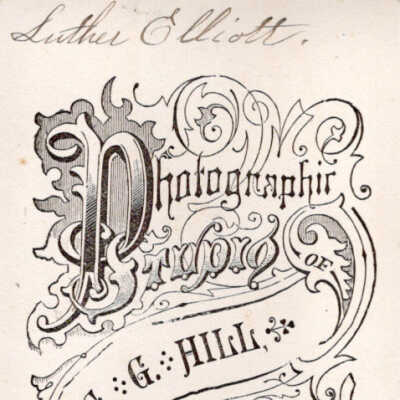 Luther Elliott.
Photographic
Studio
OF
G. HILL,